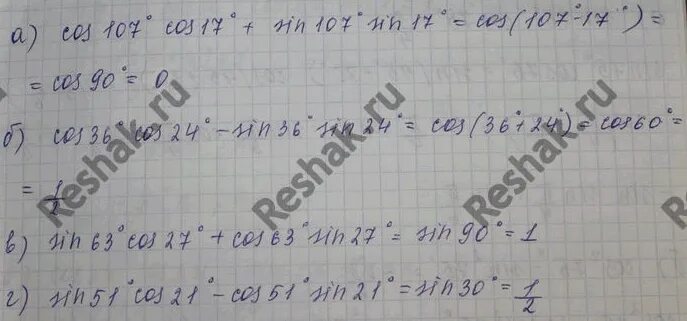 а) cos 107° cos 17° + sin 107° sin 17° = cos(107°-17°) =
= cos 90° = 0
б) cos 36° cos 24° - sin 36° sin 24° = cos(36°+24°) = cos 60° =
= 1/2
в) sin 63° cos 27° + cos 63° sin 27° = sin 90° = 1
г) sin 51° cos 21° - cos 51° sin 21° = sin 30° = 1/2
Reshak.ru
Reshak.ru
Reshak.ru